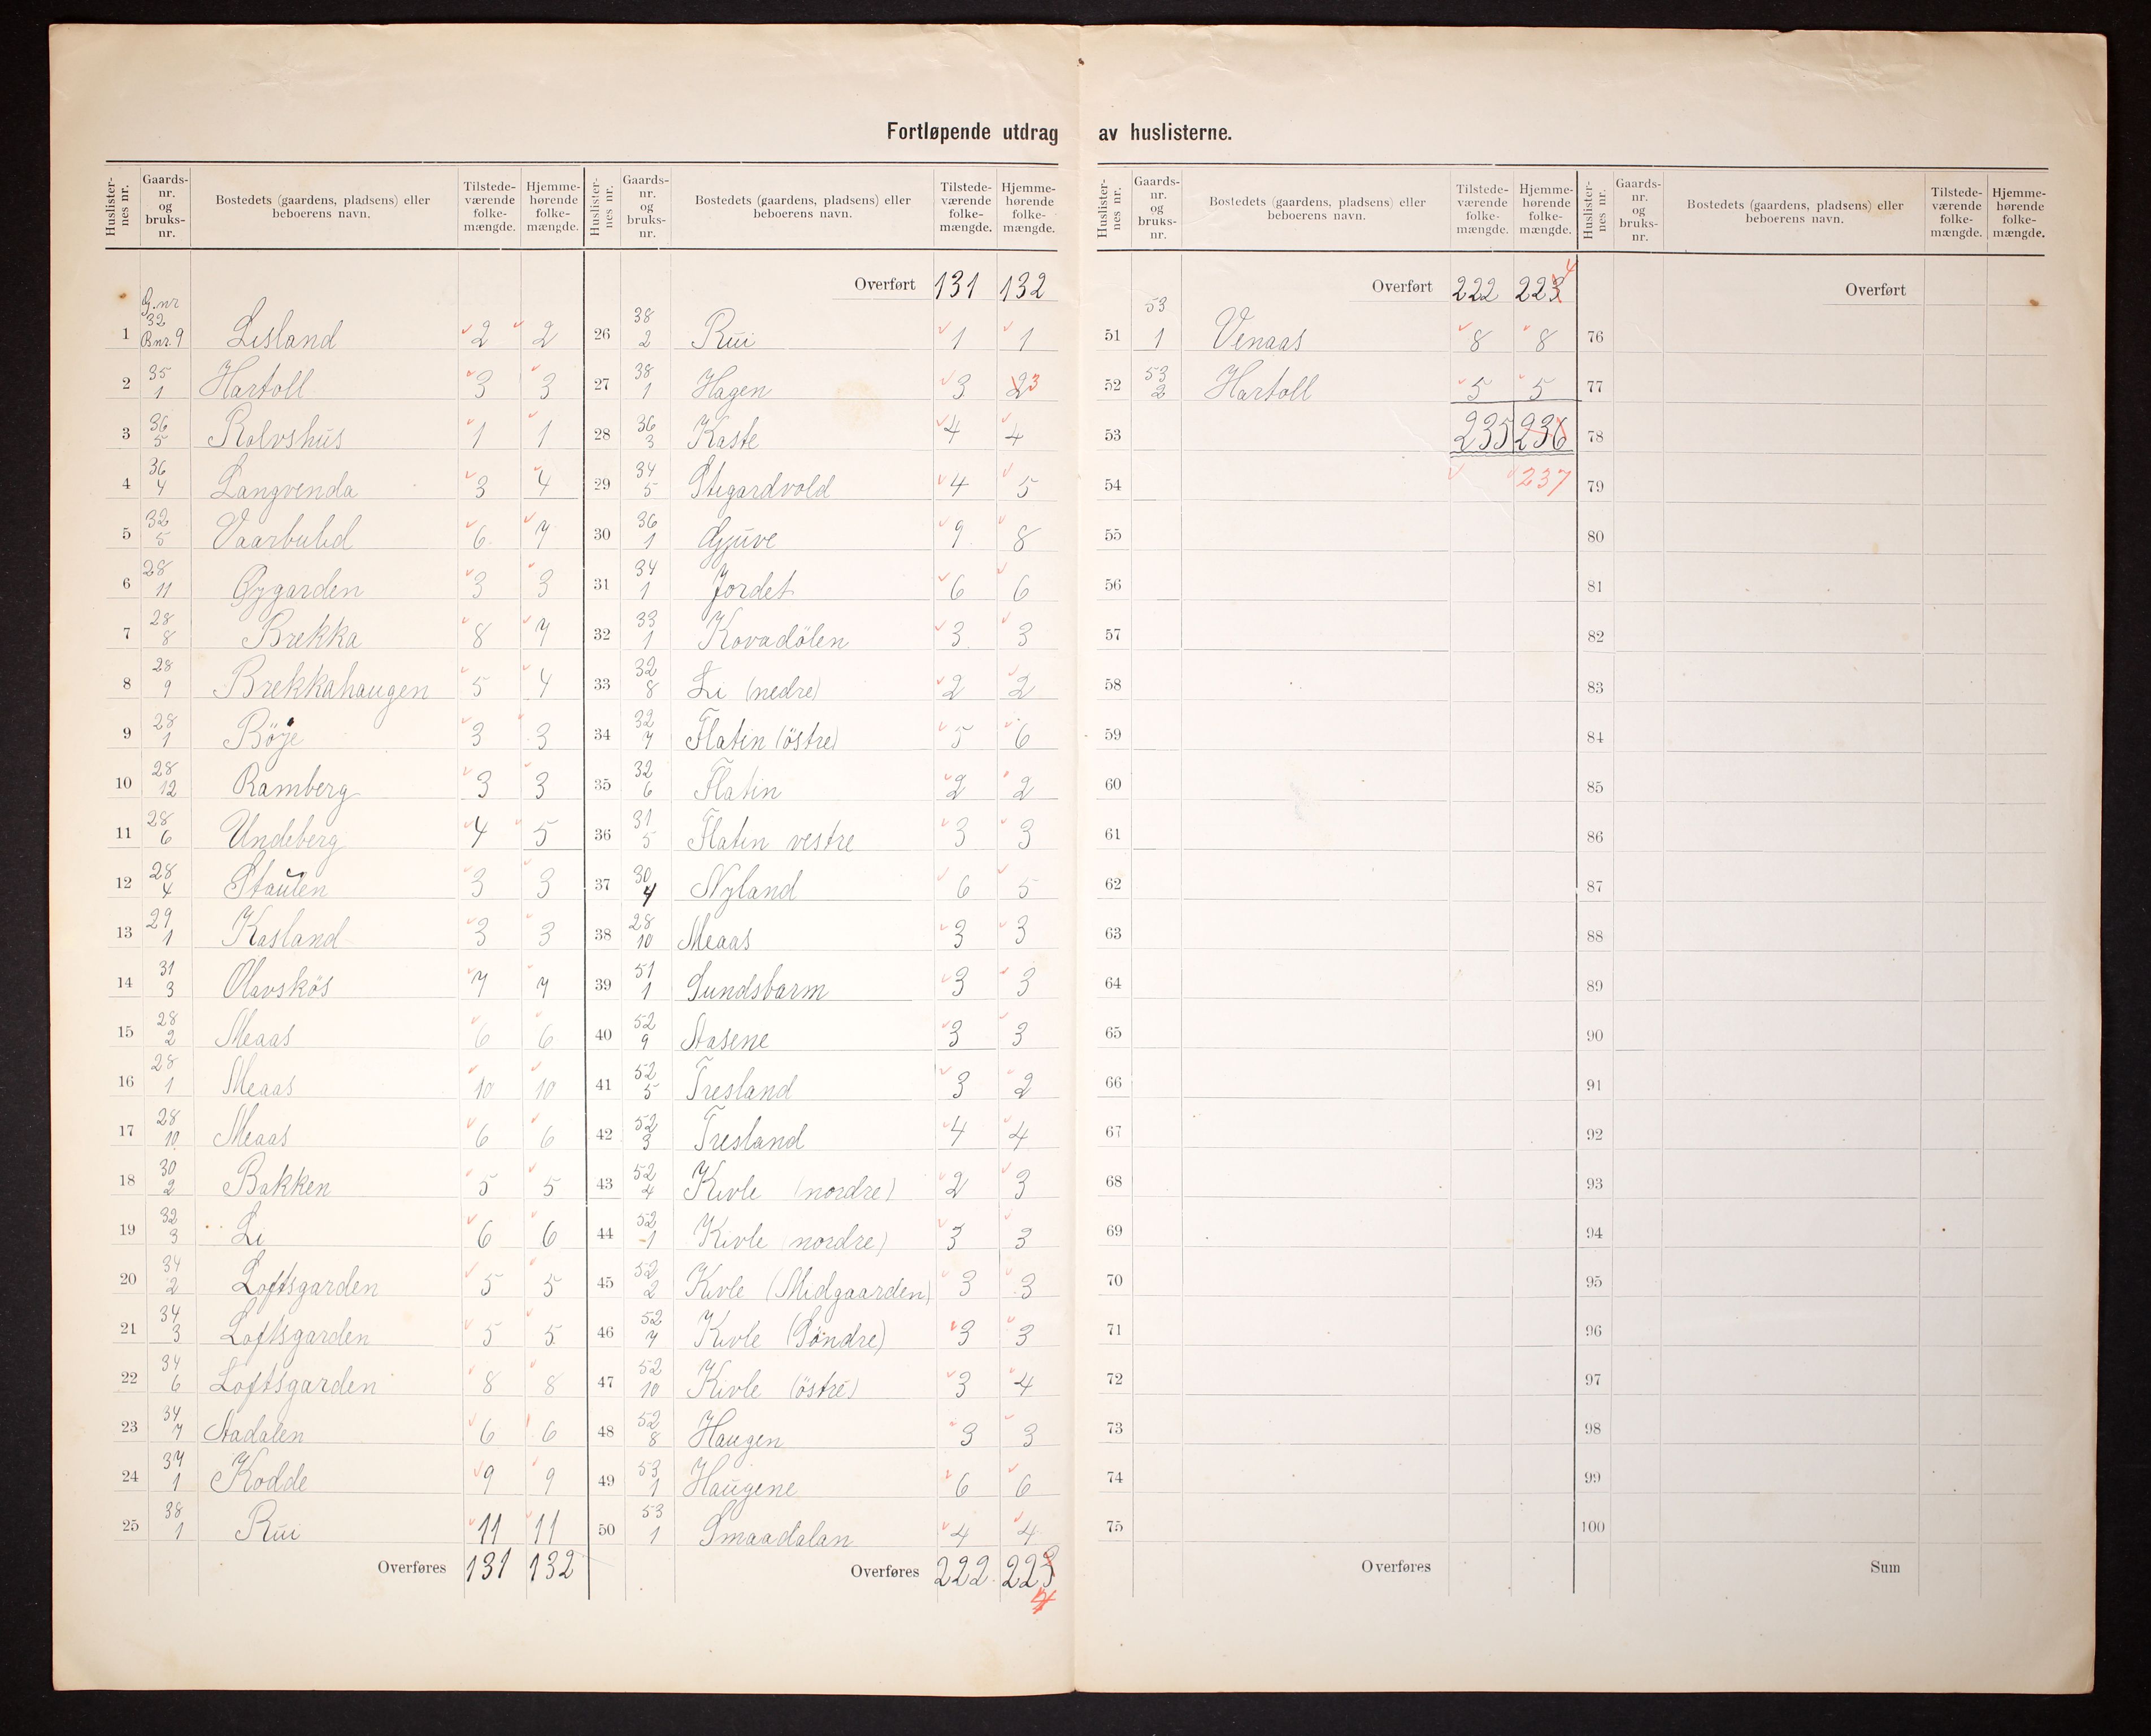 Fortløpende utdrag av huslisterne.
Huslisternes nr. Gaards-nr. og bruks-nr. Bostedets (gaardens, pladsens) eller beboerens navn. Tilstedeværende folkemængde. Hjemmehørende folkemængde.
1 G.nr 32 Bnr. 9 Lisland 2 2
2 35 1 Hartoll 3 3
3 36 5 Rolvshus 1 1
4 36 4 Langvenda 3 4
5 32 5 Vaarbulid 6 7
6 28 11 Øygarden 3 3
7 28 8 Brekka 8 7
8 28 9 Brekkahaugen 5 4
9 28 1 Böje 3 3
10 28 12 Ramberg 3 3
11 28 6 Undeberg 4 5
12 28 4 Staulen 3 3
13 29 1 Kasland 3 3
14 31 3 Olavskös 7 7
15 28 2 Meaas 6 6
16 28 1 Meaas 10 10
17 28 10 Meaas 6 6
18 30 2 Bakken 5 5
19 32 3 Li 6 6
20 34 2 Loftsgarden 5 5
21 34 3 Loftsgarden 5 5
22 34 6 Loftsgarden 8 8
23 34 7 Aadalen 6 6
24 37 1 Kodde 9 9
25 38 1 Rui 11 11
Overføres 131 132
Huslisternes nr. Gaards-nr. og bruks-nr. Bostedets (gaardens, pladsens) eller beboerens navn. Tilstedeværende folkemængde. Hjemmehørende folkemængde.
Overført 131 132
26 38 2 Rui 1 1
27 38 1 Hagen 3 2 3
28 36 3 Kaste 4 4
29 34 5 Stigardvold 4 5
30 36 1 Gjuve 9 8
31 34 1 Jordet 6 6
32 33 1 Kovadölen 3 3
33 32 8 Li (nedre) 2 2
34 32 7 Flatin (östre) 5 6
35 32 6 Flatin 2 2
36 31 5 Flatin vestre 3 3
37 30 4 Nyland 6 5
38 28 10 Meaas 3 3
39 51 1 Sundsbarm 3 3
40 52 9 Aasene 3 3
41 52 5 Tresland 3 2
42 52 3 Tresland 4 4
43 52 4 Kivle (nordre) 2 3
44 52 1 Kivle (nordre) 3 3
45 52 2 Kivle (Midgaarden) 3 3
46 52 7 Kivle (Söndre) 3 3
47 52 10 Kivle (östre) 3 4
48 52 8 Haugen 3 3
49 53 1 Haugene 6 6
50 53 1 Smaadalan 4 4
Overføres 222 223
4
Huslisternes nr. Gaards-nr. og bruks-nr. Bostedets (gaardens, pladsens) eller beboerens navn. Tilstedeværende folkemængde. Hjemmehørende folkemængde.
Overført 222 223 4
51 53 1 Venaas 8 8
52 53 2 Hartoll 5 5
53 235 236
54 237
55
56
57
58
59
60
61
62
63
64
65
66
67
68
69
70
71
72
73
74
75
Overføres
Huslisternes nr. Gaards-nr. og bruks-nr. Bostedets (gaardens, pladsens) eller beboerens navn. Tilstedeværende folkemængde. Hjemmehørende folkemængde.
Overført
76
77
78
79
80
81
82
83
84
85
86
87
88
89
90
91
92
93
94
95
96
97
98
99
100
Sum